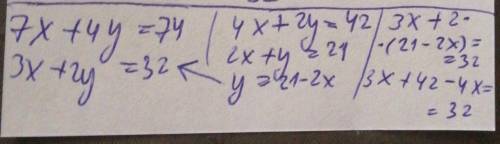 7x+4y=74
3x+2y=32
4x+2y=42
2x+y=21
y=21-2x
3x+2·
·(21-2x)=
=32
3x+42-4x=
=32